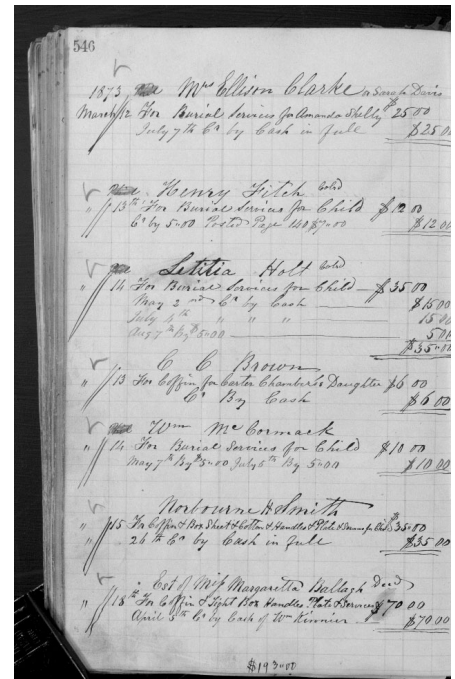 546
1873 Mrs Ellison Clarke or Sarah Davis
March 12 For Burial Services for Amanda Shelly $25 00
July 7th Cr by Cash in full $25 00
Henry Fitch Cold
" 13th For Burial Services for Child $12 00
Cr by 5"00 Posted Page 140 $7"00 $12 00
Letitia Holt Cold
" 14 For Burial Services for Child $35 00
May 2nd Cr by Cash $15 00
July 4th " " " 15 00
Aug 7th By $5"00 5 00
$35"00
C C Brown
" 13 For Coffin for Carter Chambers Daughter $6 00
Cr By Cash $6 00
Wm McCormack
" 14 For Burial Services for Child $10 00
May 7th By $5"00 July 5th By 5"00 $10 00
Norbourne H Smith
" 15 For Coffin & Box Sheet & Cotton & Handles & Plate & Services for Child $35 00
26th Cr by Cash in full $35 00
Est of Miss Margaretta Ballagh Decd
" 18th For Coffin & Tight Box Handles Plate & Services $70 00
April 5th Cr by Cash of Wm Kinnier $70 00
$193"00